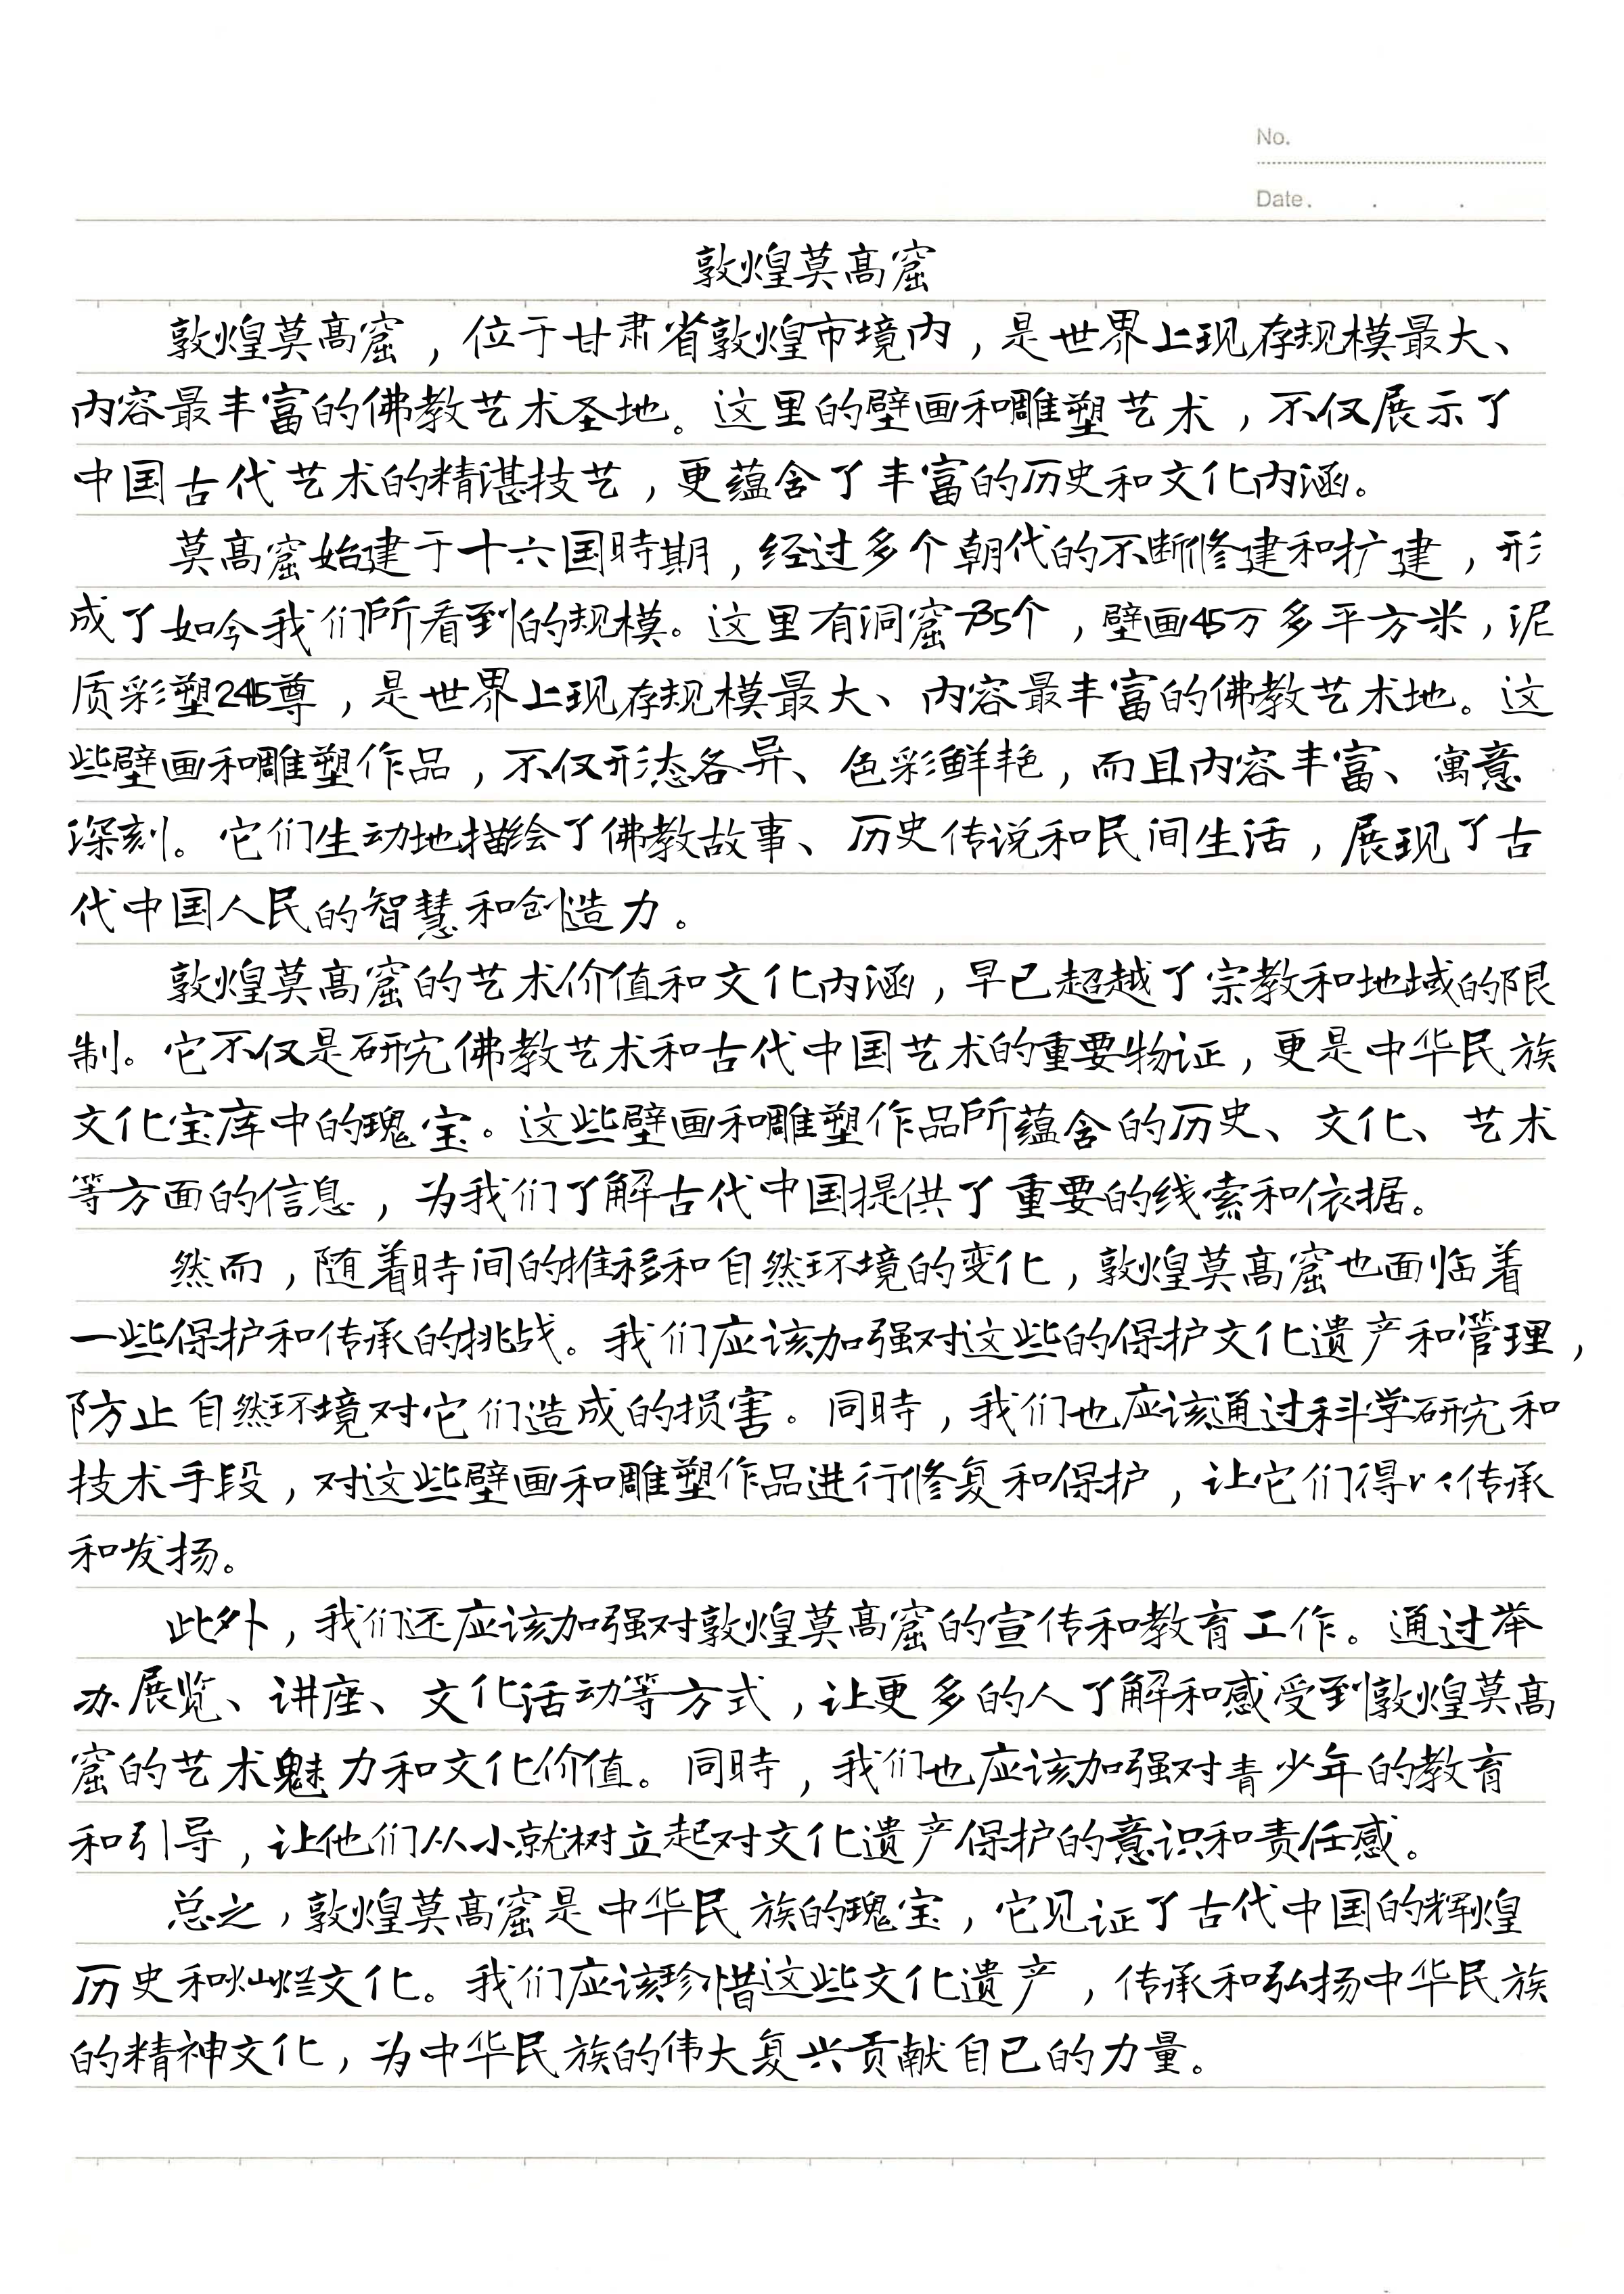 No.
Date.
敦煌莫高窟
敦煌莫高窟，位于甘肃省敦煌市境内，是世界上现存规模最大、
内容最丰富的佛教艺术圣地。这里的壁画和雕塑艺术，不仅展示了
中国古代艺术的精湛技艺，更蕴含了丰富的历史和文化内涵。
莫高窟始建于十六国時期，经过多个朝代的不断修建和扩建，形
成了如今我们所看到的规模。这里有洞窟735个，壁画45万多平方米，泥
质彩塑2415尊，是世界上现存规模最大、内容最丰富的佛教艺术地。这
些壁画和雕塑作品，不仅形态各异、色彩鲜艳，而且内容丰富、寓意
深刻。它们生动地描绘了佛教故事、历史传说和民间生活，展现了古
代中国人民的智慧和创造力。
敦煌莫高窟的艺术价值和文化内涵，早已超越了宗教和地域的限
制。它不仅是研究佛教艺术和古代中国艺术的重要物证，更是中华民族
文化宝库中的瑰宝。这些壁画和雕塑作品所蕴含的历史、文化、艺术
等方面的信息，为我们了解古代中国提供了重要的线索和依据。
然而，随着時间的推移和自然环境的变化，敦煌莫高窟也面临着
一些保护和传承的挑战。我们应该加强对这些的保护文化遗产和管理，
防止自然环境对它们造成的损害。同時，我们也应该通过科学研究和
技术手段，对这些壁画和雕塑作品进行修复和保护，让它们得传承
和发扬。
此外，我们还应该加强对敦煌莫高窟的宣传和教育工作。通过举
办展览、讲座、文化活动等方式，让更多的人了解和感受到敦煌莫高
窟的艺术魅力和文化价值。同時，我们也应该加强对青少年的教育
和引导，让他们从小就树立起对文化遗产保护的意识和责任感。
总之，敦煌莫高窟是中华民族的瑰宝，它见证了古代中国的辉煌
历史和灿烂文化。我们应该珍惜这些文化遗产，传承和弘扬中华民族
的精神文化，为中华民族的伟大复兴贡献自己的力量。